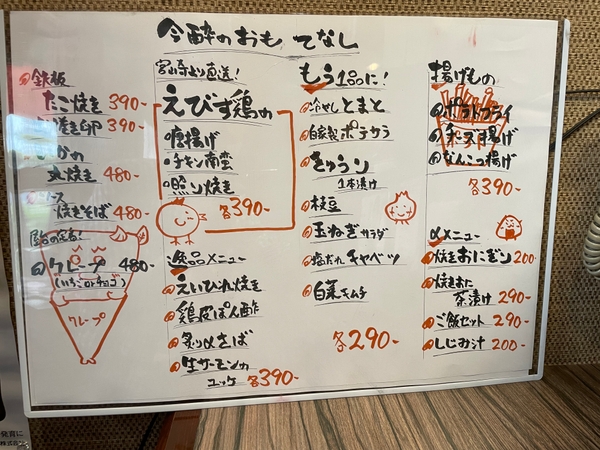 今酔のおもてなし
鉄板
たこ焼き 390-
焼き卵 390-
いかの
丸焼き 480-
ソース
焼きそば 480-
クレープ 480-
(いちごorチョコ)
クレープ
宮崎より直送!
えびす鶏の
唐揚げ
チキン南蛮
照り焼き
各390-
逸品メニュー
えいひれ焼き
鶏皮ぽん酢
炙りしめさば
生サーモンの
ユッケ 各390-
もう1品に!
冷やしトマト
自家製ポテサラ
きゅうり
1本漬け
枝豆
玉ねぎサラダ
塩だれキャベツ
白菜キムチ
各290-
揚げもの
ポテトフライ
チーズ揚げ
なんこつ揚げ
各390-
〆メニュー
焼きおにぎり 200-
焼きおに
茶漬け 290-
ご飯セット 290-
しじみ汁 200-